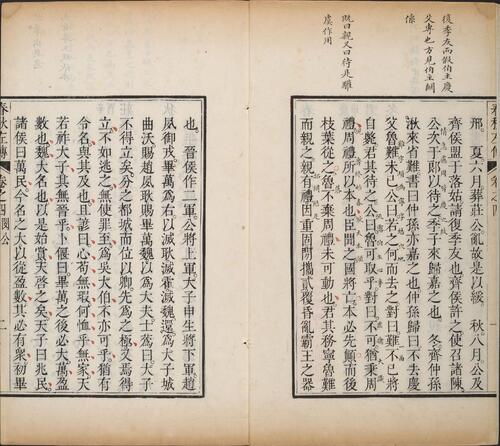 復季友而假伯主慶
父專也方見伯主綱
條
既曰親又曰待是雖
虞作用
邢　夏六月葬莊公亂故是以緩　秋八月公及
齊侯盟于落姑請復季友也齊侯許之使召諸陳
公次于郎以待之季子來歸嘉之也　冬齊仲孫
湫來省難書曰仲孫亦嘉之也仲孫歸曰不去慶
父魯難未已公曰若之何而去之對曰難不已將
自斃君其待之公曰魯可取乎對曰不可猶秉周
禮周禮所以本也臣聞之國將亡本必先顛而後
枝葉從之魯不棄周禮未可動也君其務寧魯難
而親之親有禮因重固間攜貳覆昏亂霸王之器
也　晉侯作二軍公將上軍大子申生將下軍趙
夙御戎畢萬為右以滅耿滅霍滅魏還為大子城
曲沃賜趙夙耿賜畢萬魏以為大夫士蒍曰大子
不得立矣分之都城而位以卿先為之極又焉得
立不如逃之無使罪至為吳大伯不亦可乎猶有
令名與其及也且諺曰心苟無瑕何恤乎無家天
若祚大子其無晉乎卜偃曰畢萬之後必大萬盈
數也魏大名也以是始賞天啓之矣天子曰兆民
諸侯曰萬民今名之大以從盈數其必有衆初畢
春秋左傳　卷之四閔公　二